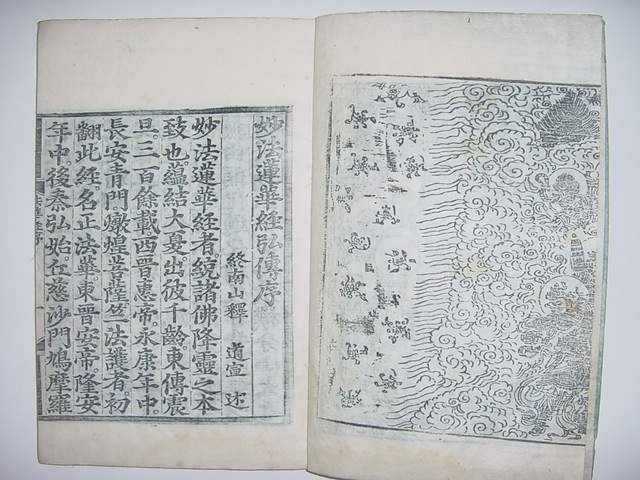 妙法蓮華經弘傳序
終南山釋 道宣 述
妙法蓮華經者。統諸佛降靈之本
致也。蘊結大夏。出彼千齡。東傳震
旦。三百餘載。西晉惠帝。永康年中。
長安青門。燉煌菩薩。竺法護者。初
翻此經。名正法華。東晉安帝。隆安
年中。後秦弘始。慈沙門。鳩摩羅